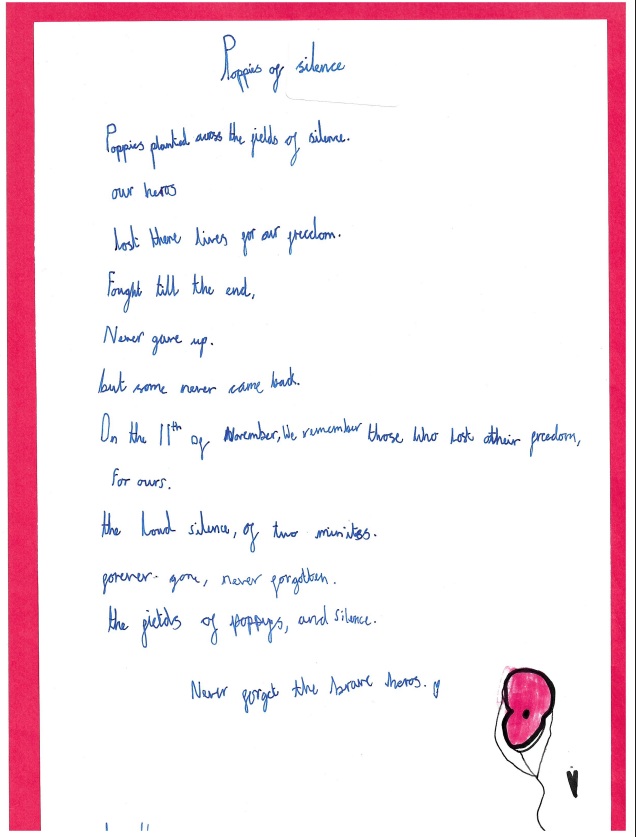 Poppies of silence
Poppies planted across the fields of silence.
our heros
Lost there lives for our freedom.
Fought till the end,
Never gave up.
but some never came back.
On the 11th of November, We remember those who lost their freedom,
For ours.
the loud silence, of two minites.
forever gone, never forgotten.
the fields of poppys, and silence.
Never forget the brave heros.